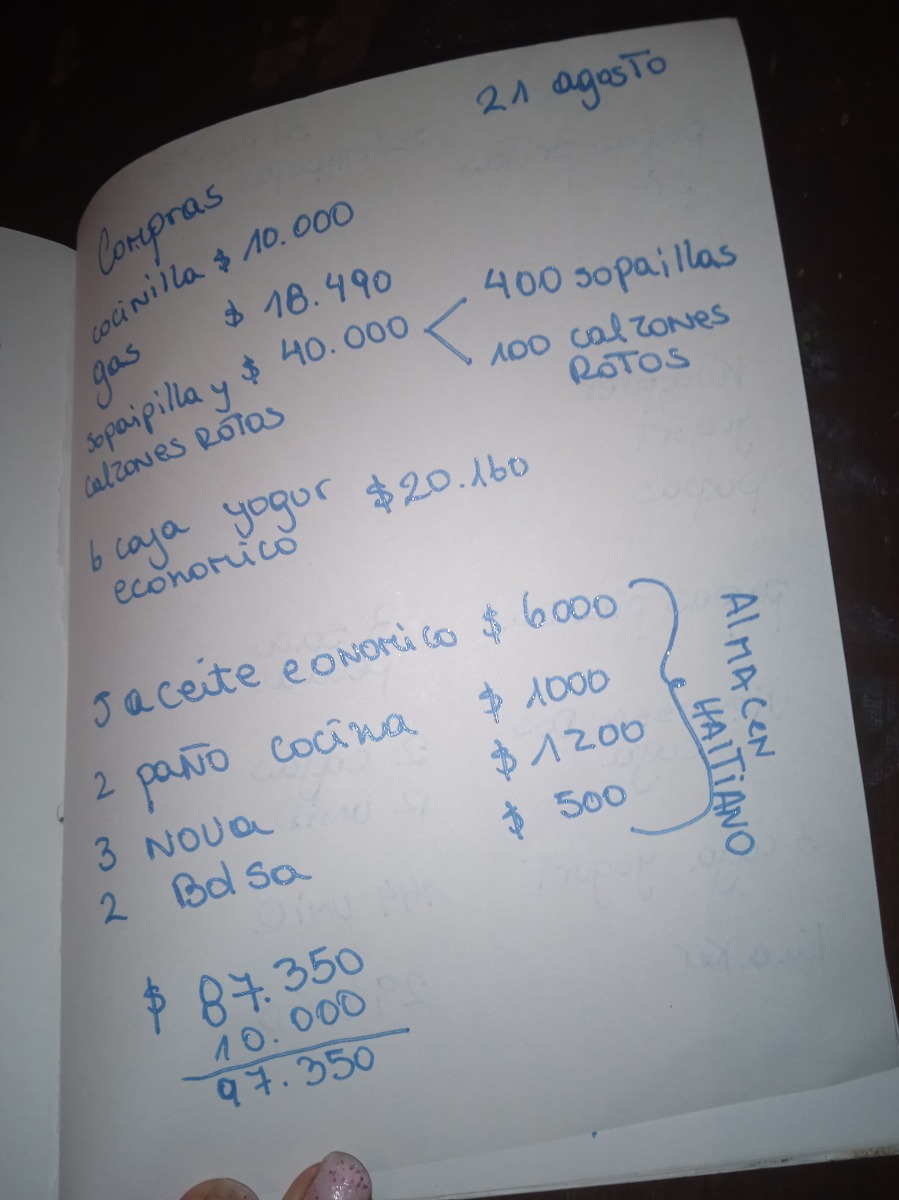 21 agosto
Compras
cocinilla $ 10.000
gas $ 18.490
sopaipilla y $ 40.000 < 400 sopaillas
calzones ROTOS
100 calzones
ROTOS
6 caja yogur $ 20.160
economico
5 aceite eonomico $ 6000
2 paño cocina $ 1000
3 NOVA $ 1200
2 Bolsa $ 500
ALMACEN
HAITIANO
$ 87.350
10.000
97.350